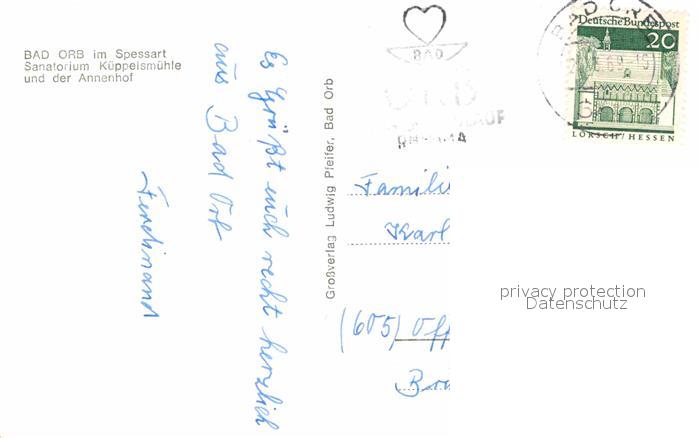 BAD ORB im Spessart
Sanatorium Küppelsmühle
und der Annenhof
Es grüßt euch recht herzlich
aus Bad Orb
Ferdinand
Großverlag Ludwig Pfeifer, Bad Orb
BAD
ORB
BAD ORB
Deutsche Bundespost
20
LORSCH/HESSEN
Famili
Karl
(605) Off
privacy protection
Datenschutz